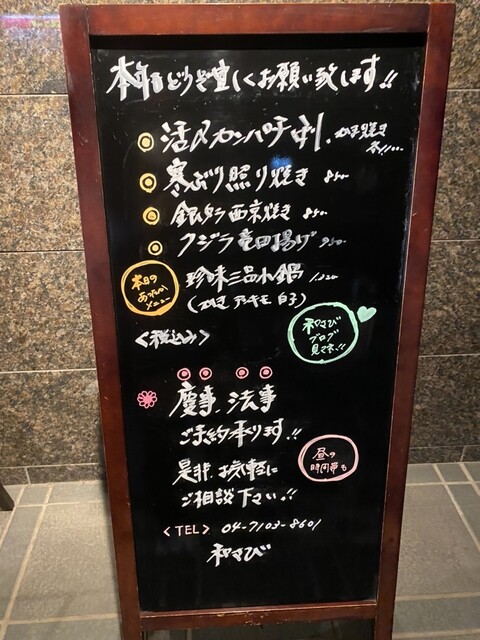 本年もどうぞ宜しくお願い致します!!
活〆カンパチ刺、
焼き
寒ぶり照り焼き 850-
銀ダラ西京焼き 850-
クジラ竜田揚げ 950-
本日の
あったか
メニュー
珍味三品小鍋
アンキモ 白子)
<税込み>
和さび
ブログ
見てネ!!
慶事、法事
ご予約承ります!!
昼の
時間帯も
是非、お気軽に
ご相談下さい。!!
<TEL> 04-7103-8601
和さび